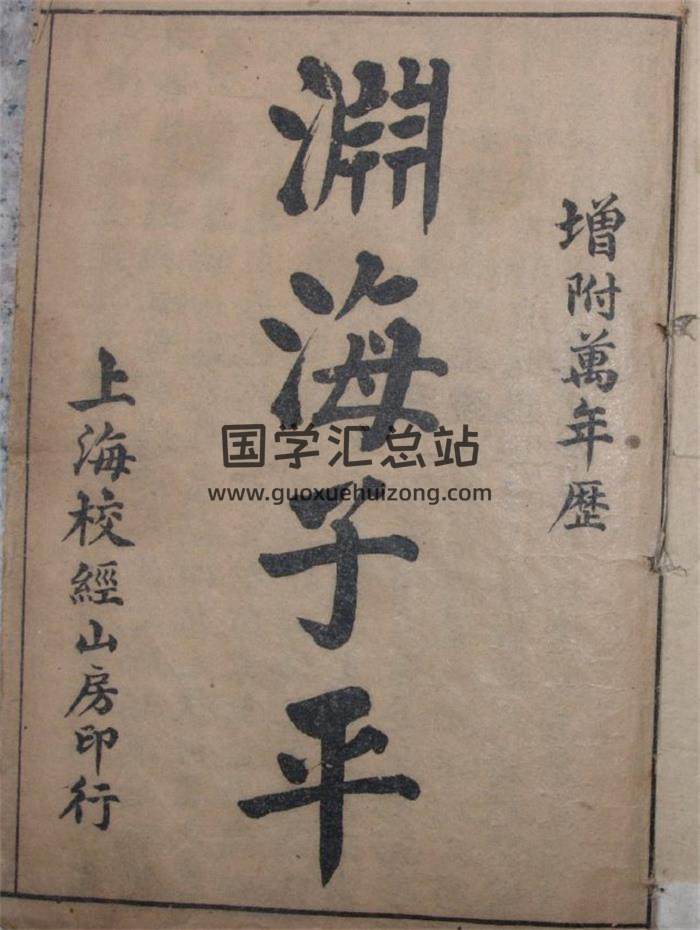 增附萬年歷
淵海子平
上海校經山房印行
国学汇总站
www.guoxuehuizong.com